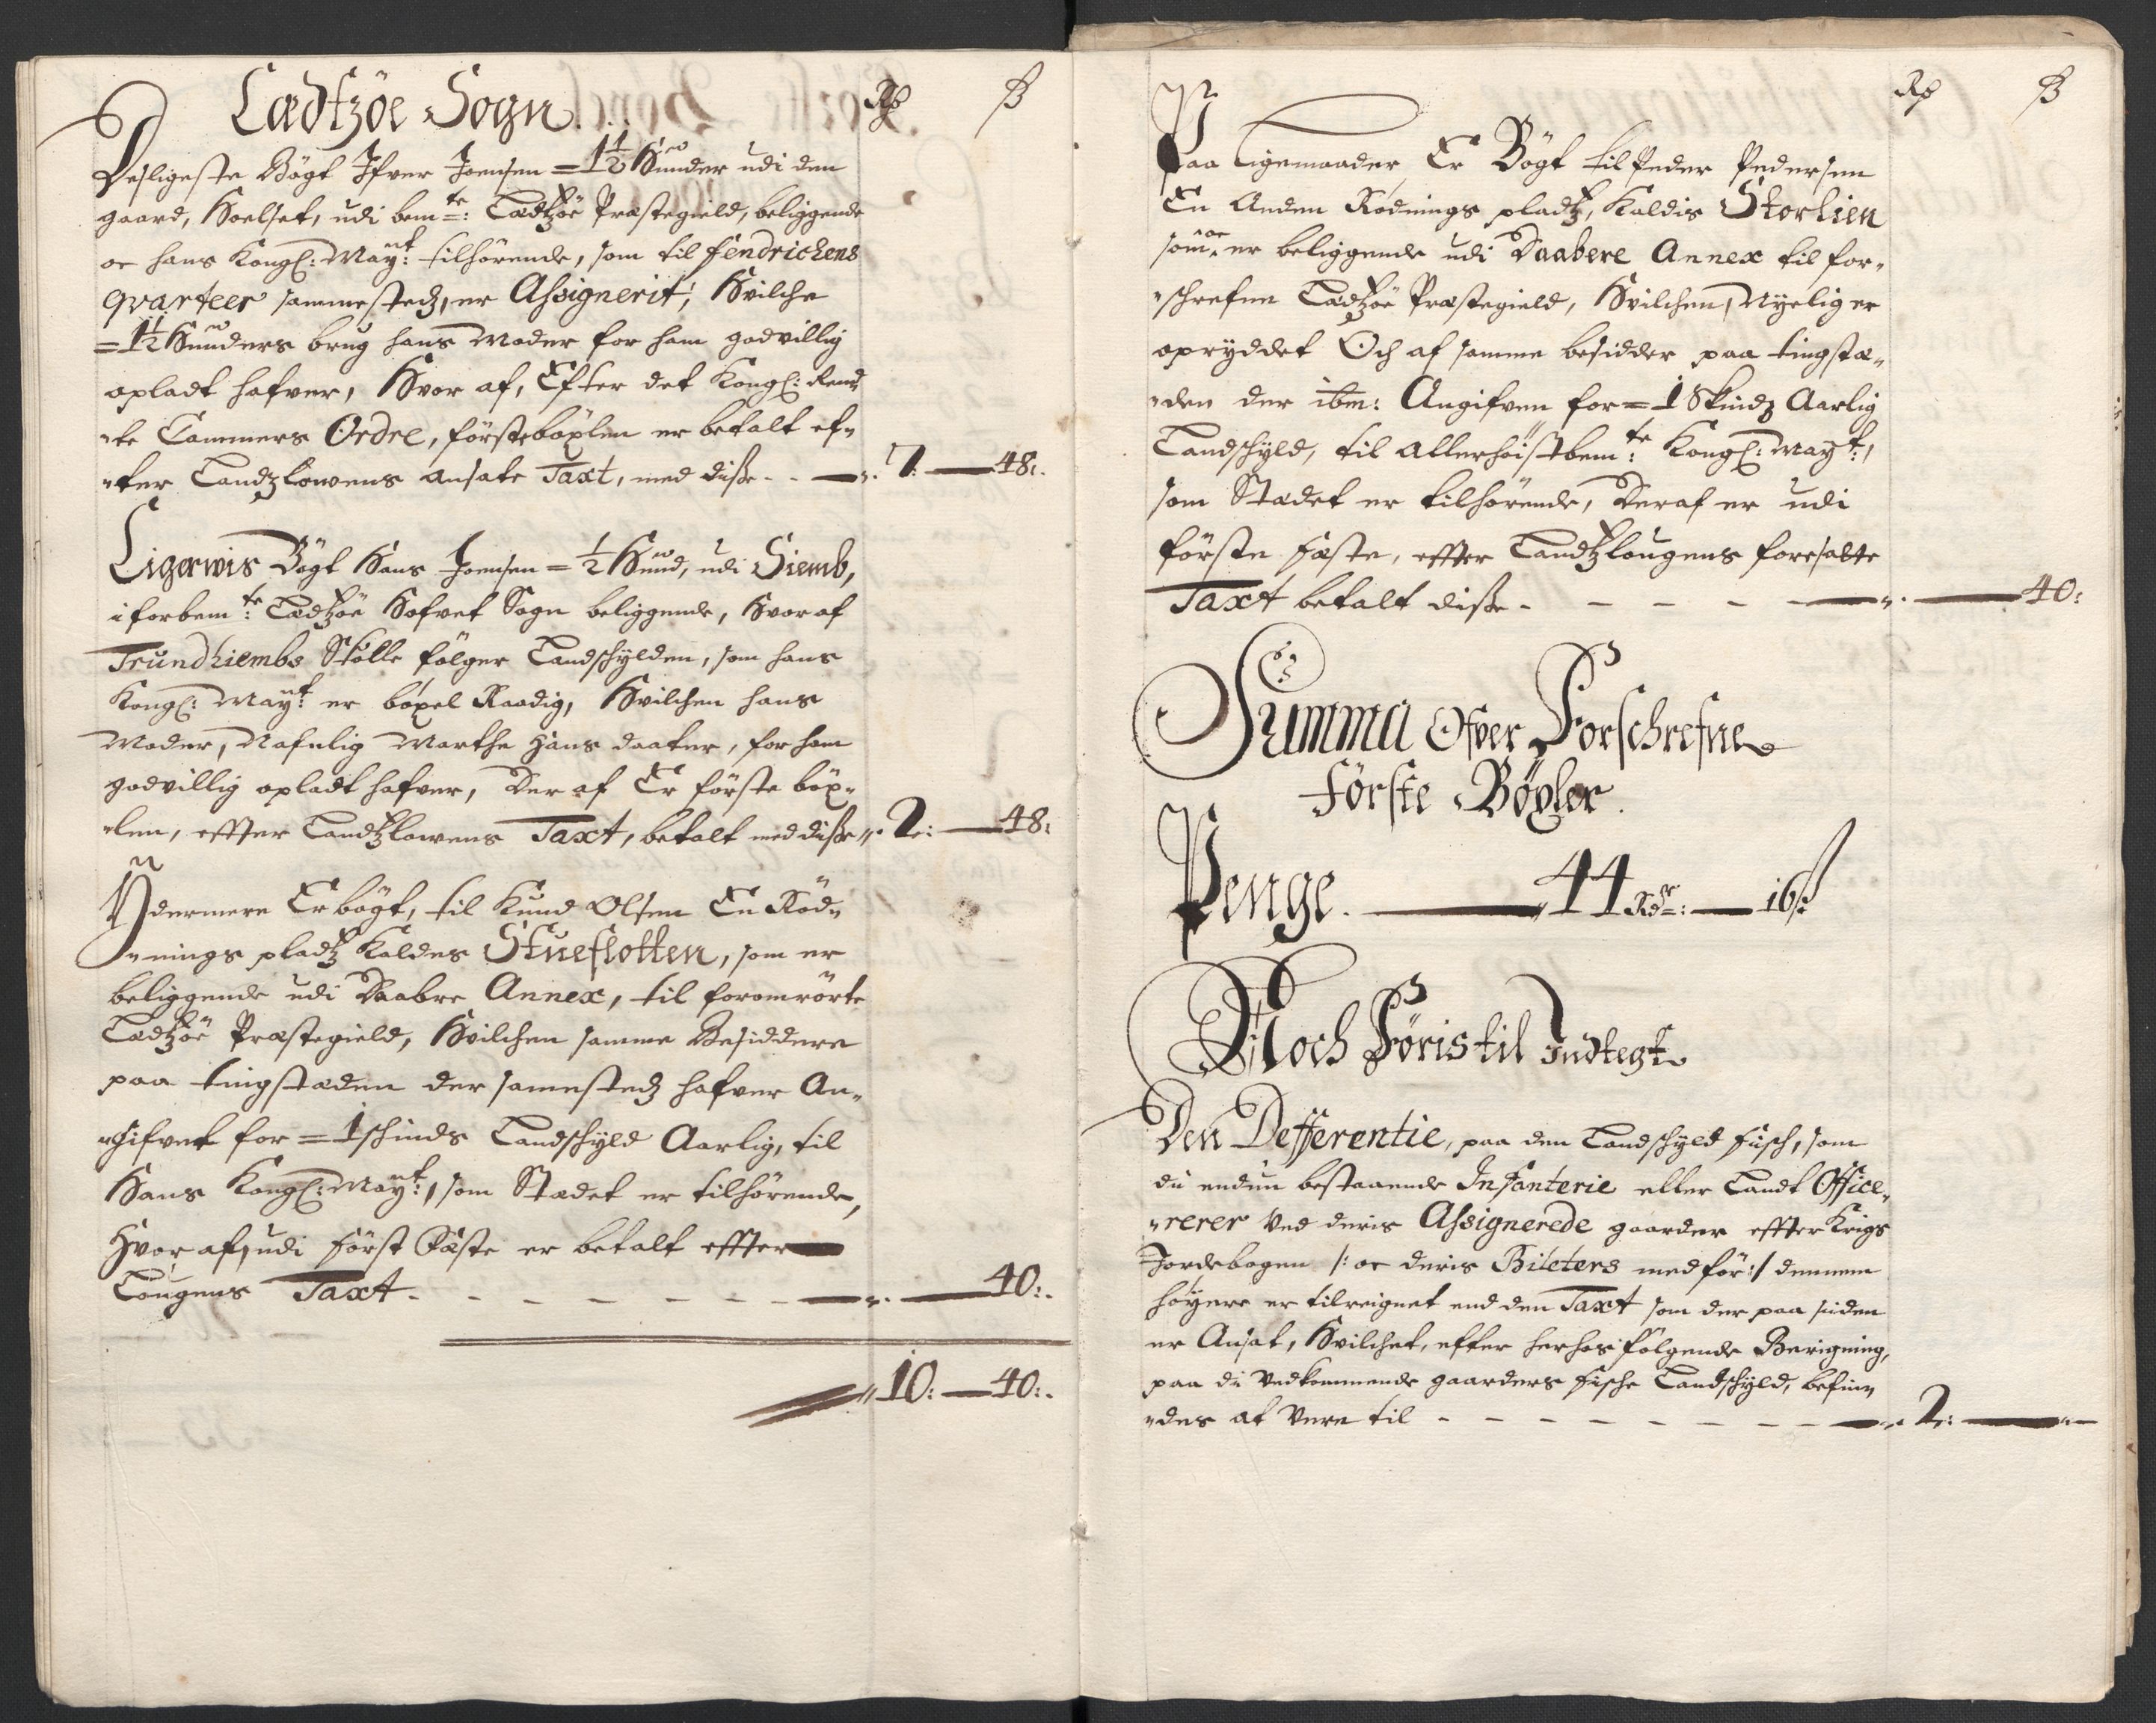 Lædtzöe Sogn. Rd ß
Desligeste Bögt Ifver Joensen = 1½ Hunder udi den
gaard, Hoelset, udi bemte: Lædtzöe Præstegield, beliggende
oc hans Kongl: Mayt: tilhörende, som til fendrichens
qvarteer sammestedz, er Assignerit, Hvilche
= 1½ Hunders brug hans Moder for ham godvillig
opladt hafver, Hvor af, Efter det Kongl: Rend
te Cammers Ordre, förstebôxlen er betalt ef„
„ter Landzlowens ansate Taxt, med disse - - — „ 7: — 48:
Ligerwis Bögt Hans Joensen = ½ Hund, udi Siemb,
i forbemte: Lædtzöe Hofvet Sogn beliggende, Hvor af
Trundhiembs Stolle fölger Landschylden, som hans
Kongl: Mayt: er böxel Raadig, Hvilchen hans
Moder, Nafnlig Marthe Hans daater, for ham
godvillig opladt hafver, Der af Er förste böx„
„len, effter Landtzlowens Taxt, betalt med disse „ 2: — 48:
Ydermere Er bögt, til Knud Olsen En Röd„
„nings pladtz kaldes Stueflotten, som er
beliggende udi Daabre Annex, til foromrörte
Lædtzöe Præstegield, Hvilchen samme Besiddere
paa tingstæden der samestedz hafver An„
„gifvet for = 1 schinds Landschyld Aarlig, til
Hans Kongl: Mayt:, som Stædet er tilhörende,
Hvor af, udi först Fæste er betalt effter
Lougens Taxt - - - - - - - — „ — 40:
„ 10: — 40:
Rd ß
Paa Ligemaader Er Bögt til Peder Pedersen
En Anden Rödnings pladtz, kaldis Storlien
som oc er beliggende udi Daabere Annex til for„
„schrefne Lædtzöe Præstegield, Hvilchen Nyelig er
opryddet Och af samme besidder paa tingstæ„
„den der ibm: Angifven for = 1 Skindz Aarlig
Landschyld, til Allerhöistbemte: Kongl: Mayt:,
som Stædet er tilhörende, Deraf er udi
förste fæste, effter Landtzlougens foresatte
Taxt betalt disse - - - - - — „ — 40:
Summa Ofver Forschrefne
Förste Böxler.
Penge. — 44 Rdr: — 16 ß
Noch Föris til Indtegt
Den Defferentie, paa den Landschyld fisch, som
di endnu bestaaende Infanterie eller Landt Office„
„rerer ved deris Assignerede gaarder effter Krigs
Jordebogen /: oc deris Bileters medför :/ dennem
höyere er tilreignet end den Taxt som der paa siden
er Ansat, Hvilchet, efter herhos fölgende Berigning,
paa di vedkommende gaarders fische Landschyld, befin„
„des at vere til - - - - - - - - — „ 2: — „ —